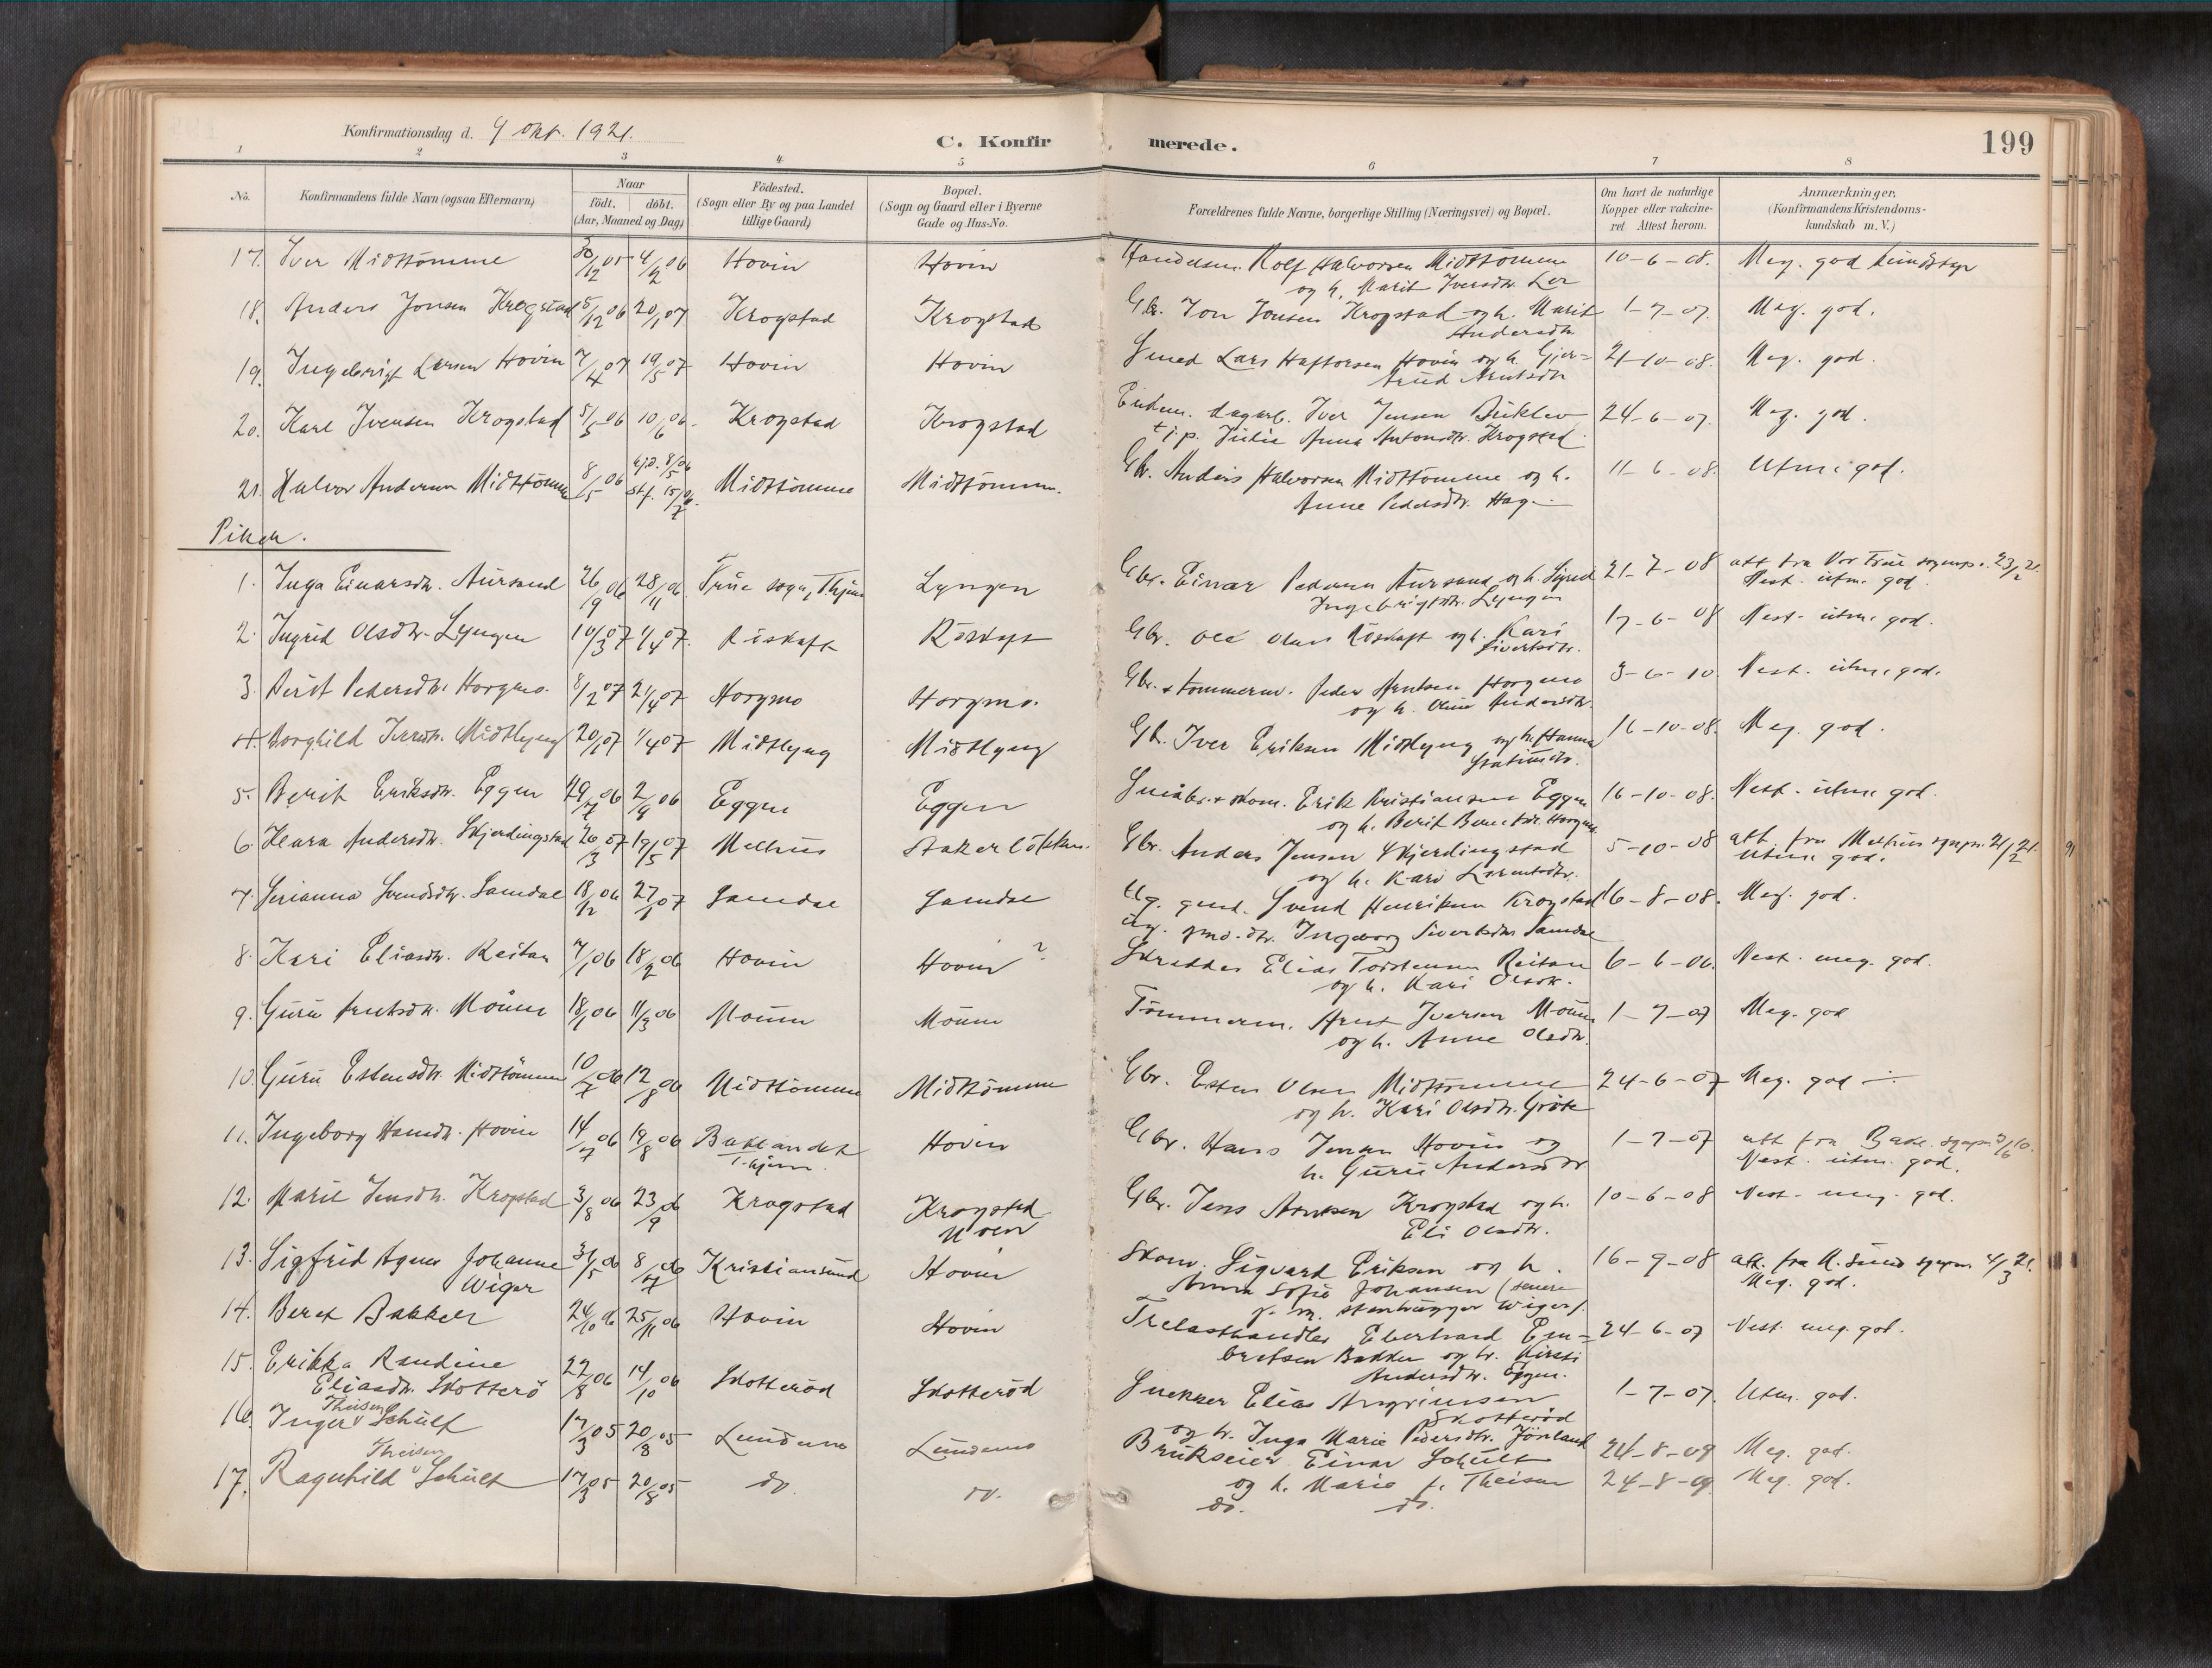 Konfirmationsdag d. 9 okt. 1921.
C. Konfir
merede.
199
1 2 3 4 5 6 7 8
No.
Konfirmandens fulde Navn (ogsaa Efternavn)
Naar
födt. döbt.
(Aar, Maaned og Dag)
Födested.
(Sogn eller By og paa Landet
tillige Gaard)
Bopæl.
(Sogn og Gaard eller i Byerne
Gade og Hus-No.
Forældrenes fulde Navne, borgerlige Stilling (Næringsvei) og Bopæl.
Om havt de naturlige
Kopper eller vakcine-
ret Attest herom.
Anmærkninger.
(Konfirmandens Kristendoms-
kundskab m. V.)
17. Iver Midttömme 30/12 05 4/2 06 Hovin Hovin Handelsm. Rolf Halvorsen Midttömme 10-6-08. Meg. god kundskap
og h. Marit Iversdtr. Ler
18. Anders Jonsen Krogstad 5/12 06 20/1 07 Krogstad Krogstad Gbr. Jon Jonsen Krogstad og h. Marit 1-7-07. Meg. god.
Andersdtr.
19. Ingebrigt Larsen Hovin 7/4 07 19/5 07 Hovin Hovin Smed Lars Haftorsen Hovin og h. Gjer= 21-10-08. Meg. god.
trud Arntsdtr
20. Karl Iversen Krogstad 5/5 06 10/6 06. Krogstad Krogstad Iver Jensen 24-6-07. Meg. god.
t i p. Julie Anna Antonsdtr. Krogstad.
21. Halvor Andersen Midttömme 8/5 06 hjd. 8/5 06 Midttömme Midttömme. Gbr. Anders Halvorsen Midttömme og h. 11-6-08. Utm. god.
stf. 15/7 06.
Anne Pedersdtr. Hage
Piker.
1. Inga Einarsdtr. Aursand 26/9 06 28/11 06. Frue sogn, Thjem Lyngen Gbr. Einar Pedersen Aursand og h. Sigrid 21-7-08 att fra Vor Frue sognep. 23/2 21.
Ingebrigtsdtr. Lyngen Nest. utm. god.
2. Ingrid Olsdtr. Lyngen 10/3 07 1/4 07. Röskaft Röskaft Gbr. Ole Olsen Röskaft og h. Kari 17-6-08 Nest. utm. god.
Sivertsdtr.
3. Berit Pedersdtr. Horgmo. 8/2 07 21/4 07 Horgmo Horgmo. Gbr. + tömmerm. Peder Arntsen Horgmo 3-6-10. Nest. utm. god.
og h. Oline Andersdtr.
4. Borghild Iversdtr. Midtlyng 20/1 07 1/4 07 Midtlyng Midtlyng Gbr. Iver Eriksen Midtlyng og h. Hanna 16-10-08. Meg. god.
5. Berit Eriksdtr. Eggen 29/7 06 2/9 06 Eggen Eggen Smaabr. + skom. Erik Kristiansen Eggen 16-10-08. Nest. utm. god.
og h. Berit Berntsdtr. Horgmo
6. Klara Andersdtr. Skjerdingstad 20/3 07 19/5 07 Melhus Stakerlökken. Gbr. Anders Jensen Skjerdingstad 5-10-08 att. fra Melhus sognep. 21/2 21.
og h. Kari Larentsdtr. Utm. god.
7. Jerianna Svendsdtr. Samdal 18/12 06 27/1 07 Samdal Samdal Ug. gmd. Svend Henriksen Krogstad 16-8-08. Meg. god.
ug. gmd.dtr. Ingeborg Sivertsdtr Samdal
8. Kari Eliasdtr. Reitan 7/1 06 18/2 06 Hovin Hovin ? Skredder Elias Torstensen Reitan 6-6-06. Nest. meg. god.
og h. Kari Olsdtr.
9. Guru Arntsdtr. Moum 18/1 06 11/3 06 Moum Moum Tömmerm. Arnt Iversen Moum 1-7-07 Meg. god
og h. Anne Olsdtr.
10. Guru Estensdtr. Midttömme 10/7 06 12/8 06 Midttömme Midttömme Gbr. Esten Olsen Midttömme 24-6-07 Meg. god
og h. Kari Olsdtr. Gröte
11. Ingeborg Hansdtr. Hovin 14/7 06 19/8 06 Baklandet Hovin Gbr. Hans Jensen Hovin og 1-7-07 att fra Bakl. sognep.
T.hjem. h. Guru Andersdtr. Nest. utm. god.
12. Marit Jensdtr. Krogstad 3/8 06 23/9 06 Krogstad Krogstad Gbr. Jens Arntsen Krogstad og h. 10-6-08 Nest. meg. god.
Moen Eli Olsdtr.
13. Sigfrid Agnes Johanne 31/5 06 8/7 06 Kristiansund Hovin Skom. Sigvard Eriksen og h. 16-9-08 att. fra K.sund sognep. 4/3 21.
Wiger Anna Sofie Johansen (senere Meg. god.
g. m. stenhugger Wiger).
14. Beret Bakken 24/10 06 25/11 06 Hovin Hovin Trelasthandler Eberhard Em= 24-6-07 Nest. meg. god.
bretsen Bakken og h. Kirsti
Andersdtr. Eggen.
15. Erikka Randine 22/8 06 14/10 06 Skotteröd Skotteröd Snekker Elias Arngrimsen 1-7-07. Utm. god.
Eliasdtr. Skotterö Skotteröd
og h. Inga Marie Pedersdtr. Jönland
16. Inger Theisen Schult 17/3 05 20/8 05 Lundamo Lundamo Brukseier Einar Schult 24-8-09 Meg. god.
og h. Marie f. Theisen
17. Ragnhild Theisen Schult 17/3 05 20/8 05 do. do. do. do. 24-8-09. Meg. god.